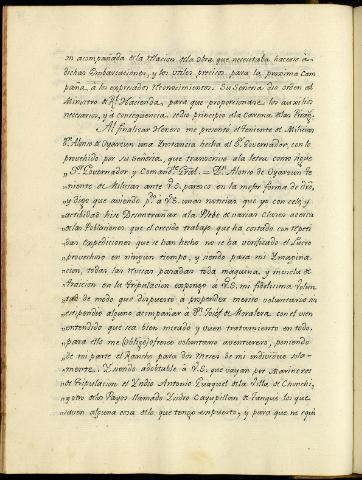 on acompañada de la relacion de la obra que necesitaba hacerse á
dichas Embarcaciones, y los utiles precisos para la proxima Cam
paña, á los expresados Reconocimientos. Su Señoria dio orden al
Ministro de Rl. Hacienda, para que proporcionase los auxilios
necesarios, y á consequencia se dio principio a la Carena de las Pirags.
Al finalizar Henero me presentó el teniente de Milicias
Dn. Alonso de Oyarzun una Instancia hecha al Sr. Governador, con lo
provehido por su Señoria, que transcrivo ala letra como sigue
Sr. Governador y Comandte. Gral. = Dn. Alonso de Oyarzun te
niente de Milicias ante V.S. parezco en la mejor forma de dro,
y digo que aviendo á V.S. unas noticias que yo con celo, y
actividad hize Desentrañar ala Plebe de varias Clases acerca
de las Poblaciones que el crecido trabajo que ha costado con repeti
das expediciones que se han hecho no se ha verificado el Lucro
provechoso en ningun tiempo, y siendo para mi Imagina
cion, todas las Ruinas pasadas toda maquina, y mezcla de
traicion en la tripulacion expongo á V.S. mi fidelisima volun
tad de modo que dispuesto a propender merito voluntario sin
estipendio alguno acompañar a Dn. Josef de Moraleda, con el vien
entendido que sea bien mirado y vuen tratamiento en todo,
para ello me (obligo) ofrezco voluntario aventurero, poniendo
de mi parte el Rancho para dos Meses de mi individuo sola-
mente. Y siendo adoptable á V.S. que vayan por Marineros
de tripulacion el Yndio Antonio de la Villa de Chonchi,
y otro de los Payos llamado Ysidro Cayupillan de Tanqui los que
saven alguna cosa de lo que tengo expuesto, y para que no equi